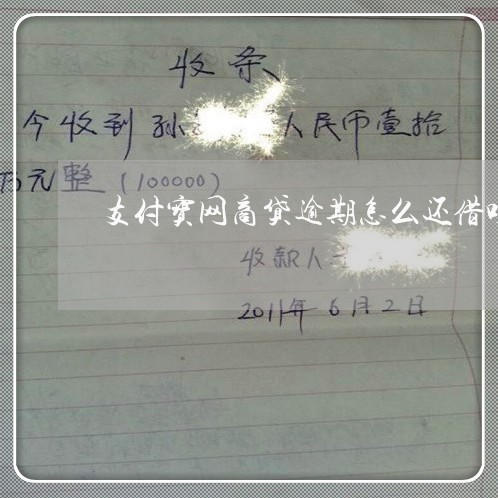 收条
今收到孙 人民币壹拾
万元整(100000)
支付宝网商贷逾期怎么还借
收款人
2011年6月2日